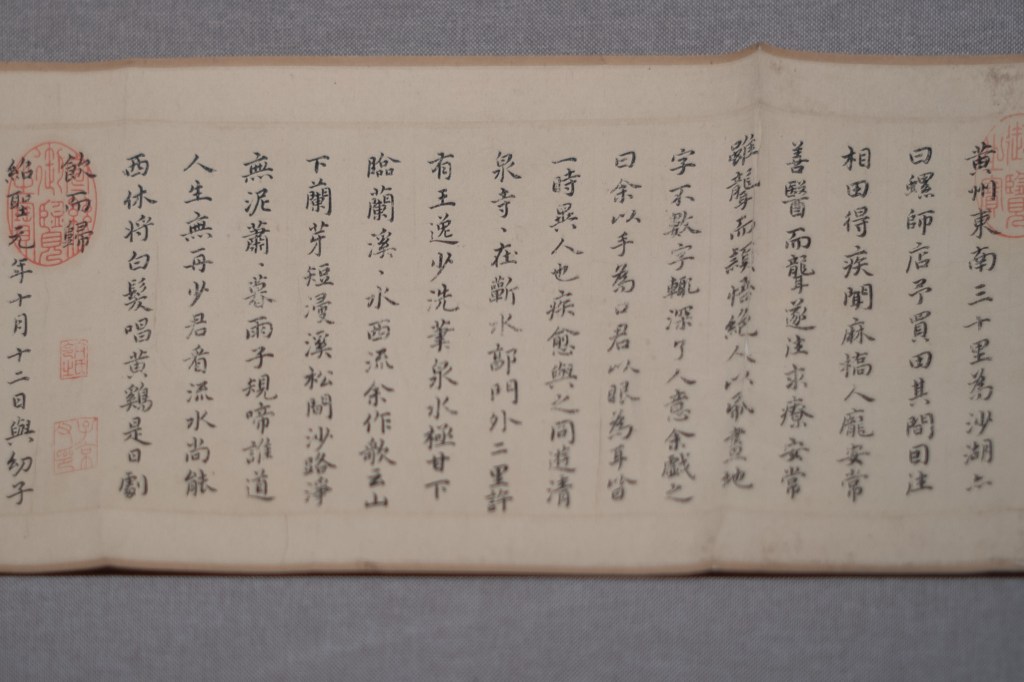 黄州東南三十里為沙湖亦
曰螺師店予買田其間因往
相田得疾聞麻橋人龐安常
善醫而聾遂往求療安常
雖聾而穎悟絕人以帋畫地
字不數字輒深了人意余戲之
曰余以手為口君以眼為耳皆
一時異人也疾愈與之同遊清
泉寺〻在蘄水郭門外二里許
有王逸少洗筆泉水極甘下
臨蘭溪〻水西流余作歌云山
下蘭芽短浸溪松間沙路淨
無泥蕭〻暮雨子規啼誰道
人生無再少君看流水尚能
西休将白髮唱黄鷄是日劇
飲而歸
紹聖元年十月十二日與幼子